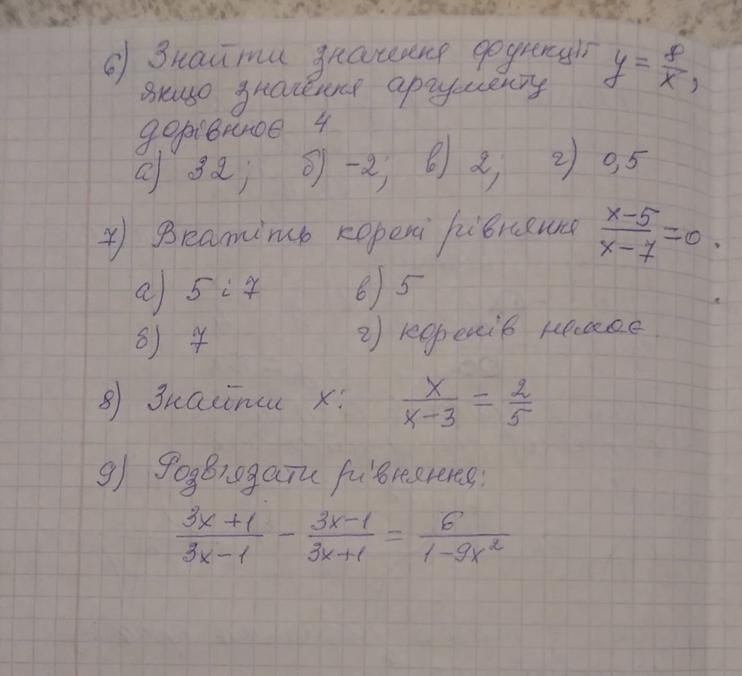 6) Знайти значення функції y = 8/x,
якщо значення аргументу
дорівнює 4
а) 32; б) -2; в) 2; г) 0,5
7) Вкажіть корені рівняння (x-5)/(x-7) = 0.
а) 5 і 7 в) 5
б) 7 г) коренів немає.
8) Знайти x: x/(x-3) = 2/5
9) Розв'язати рівняння:
(3x+1)/(3x-1) - (3x-1)/(3x+1) = 6/(1-9x²)